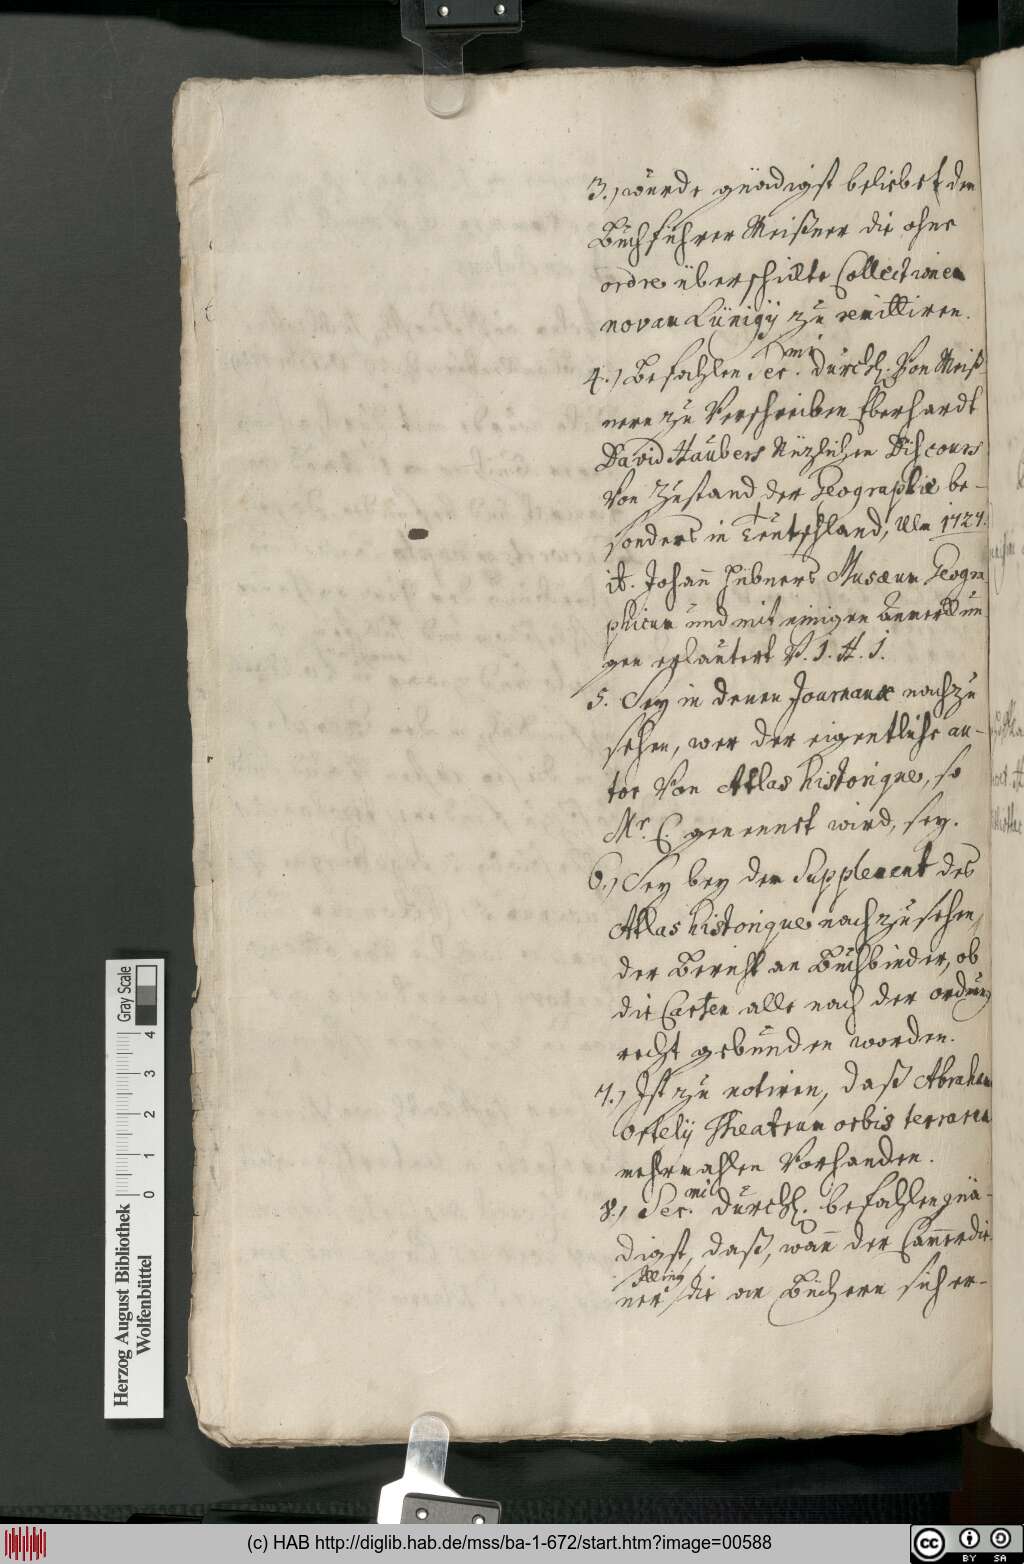 3.) wurde gnädigst beliebet dem
Buchführer Meißner die ohne
ordre überschickte Collectionem
novam Lünigij zu remittiren.
4.) Befahlen Ser.mi Durchl. Von Meiß-
nern zu Verschreiben Eberhardt
David Haubers Nüzlichen Discours
Von Zustand der Geographie be-
sonders in Teutschland, Ulm 1727.
it. Johann Hübners Musæum Geogra
phicum und mit einigen Anmerckun
gen erläutert V. J. H. J.
5. Sey in denen Journaux nachzu
sehen, wer der eigentliche au-
tor Von Atlas historique, so
Mr. C. genennet wird, sey.
6.) Sey bey dem Supplement des
Atlas historique nachzusehen,
der Bericht an Buchbinder, ob
die Carten alle nach der ordnung
recht gebunden worden.
7.) Ist zu notiren, daß Abraham
Ortelij Theatrum orbis terrarum
mehrmahlen Vorhanden.
8.) Ser.mi Durchl. befahlen gnä-
digst, daß, wann der Cammerdie
ner die an Büchern sich er-
Herzog August Bibliothek
Wolfenbüttel
0 1 2 3 4
Gray Scale
(c) HAB http://diglib.hab.de/mss/ba-1-672/start.htm?image=00588
cc BY SA